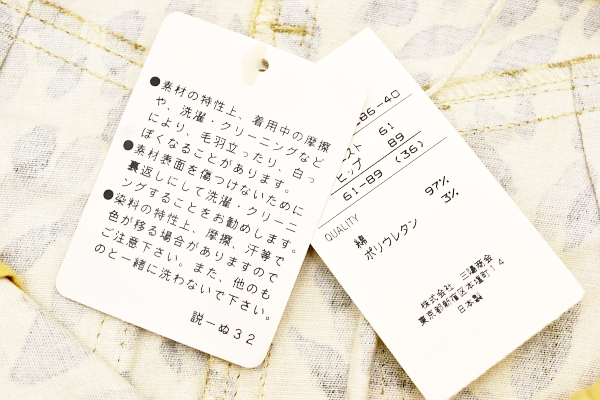 ●素材の特性上、着用中の摩擦
や、洗濯・クリーニングなど
により、毛羽立ったり、白っ
ぽくなることがあります。
●素材表面を傷つけないために
裏返しにして洗濯・クリーニ
ングすることをお勧めします。
●染料の特性上、摩擦、汗等で
色が移る場合がありますので
ご注意下さい。また、他のも
のと一緒に洗わないで下さい。
説ーぬ32
86-40
スト 61
ヒップ 89
61-89 (36)
QUALITY
綿 97%
ポリウレタン 3%
株式会社 三陽商会
東京都新宿区本塩町14
日本製